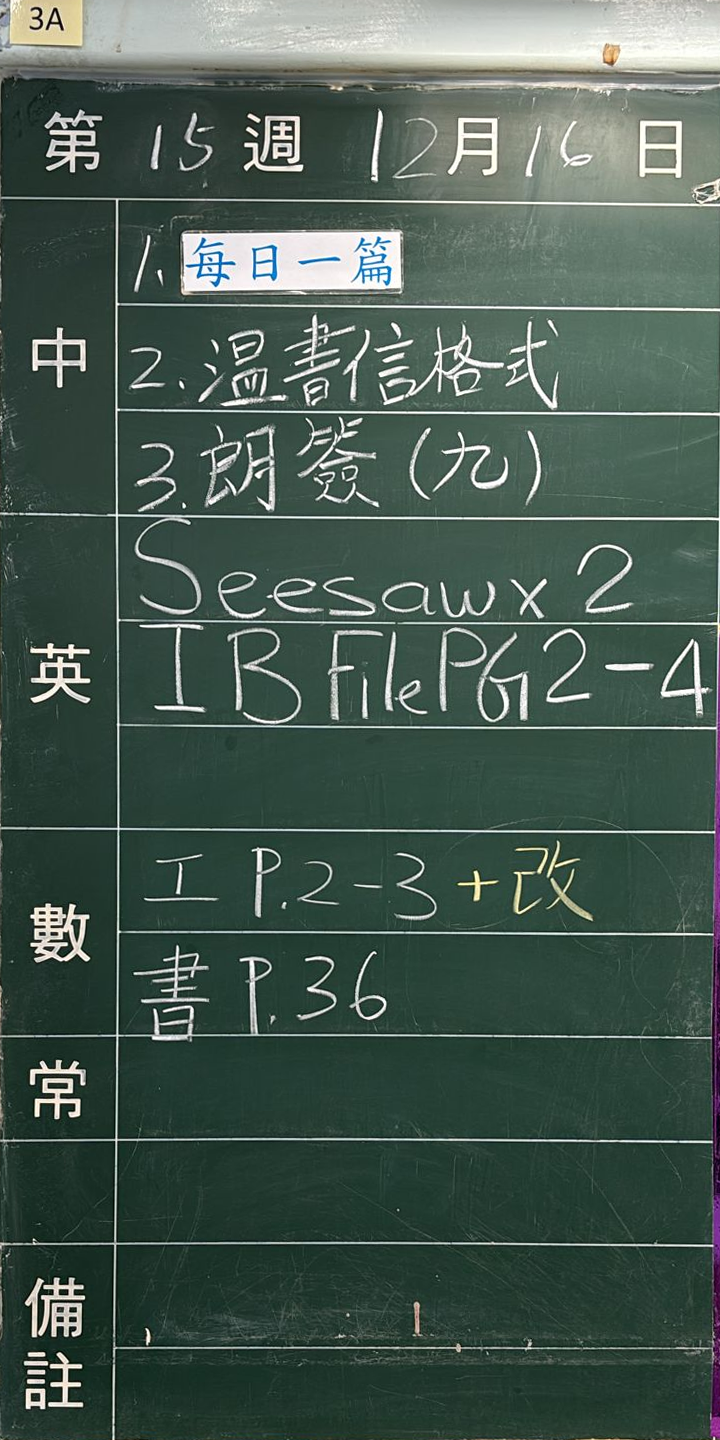 3A
第 15 週 12月16日
中
1. 每日一篇
2. 溫書信格式
3. 朗簽(九)
英
Seesaw x 2
IB File PG2-4
數
工 P.2-3 +改
書 P.36
常
備註